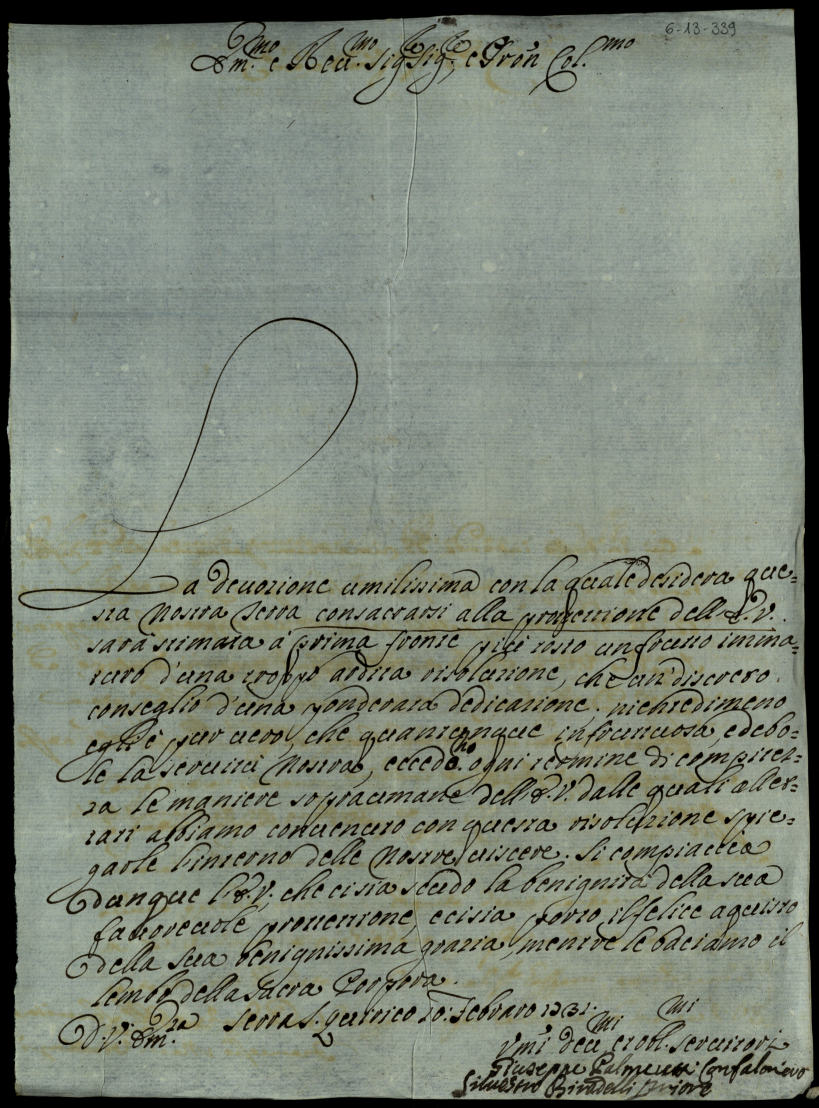 6-13-339
Em.mo e Reu.mo Sig.re Sig.re, e Pron Col.mo
La deuozione umilissima con la quale desidera que=
sta Nostra Serra consacrarsi alla protezzione dell'E.V.
sarà stimata a prima fronte più tosto un frutto imma=
turo d'una troppo ardita risoluzione, che un discreto
conseglio d'una ponderata dedicazione; nientedimeno
egli è pur uero, che quantunque infrutuosa, e debo=
le la seruitù Nostra, eccedono ogni termine di compitez=
za le maniere sopraumane dell'E.V. dalle quali allet=
tati abbiamo conuenuto con questa risoluzione spie=
garle l'interno delle Nostre uiscere. Si compiaccia
dunque l'E.V. che ci sia scudo la benignità della sua
fauoreuole protezzione, e ci sia porto il felice aquisto
della sua benignissima grazia, mentre le baciamo il
lembo della Sacra Porpora.
D.V. Em.za Serra S. Quirico 20: Febraro 1731:
Vm.mi deu.mi et obl.mi seruitori
Giuseppe Palmucci Confaloniero
Siluestro Priore